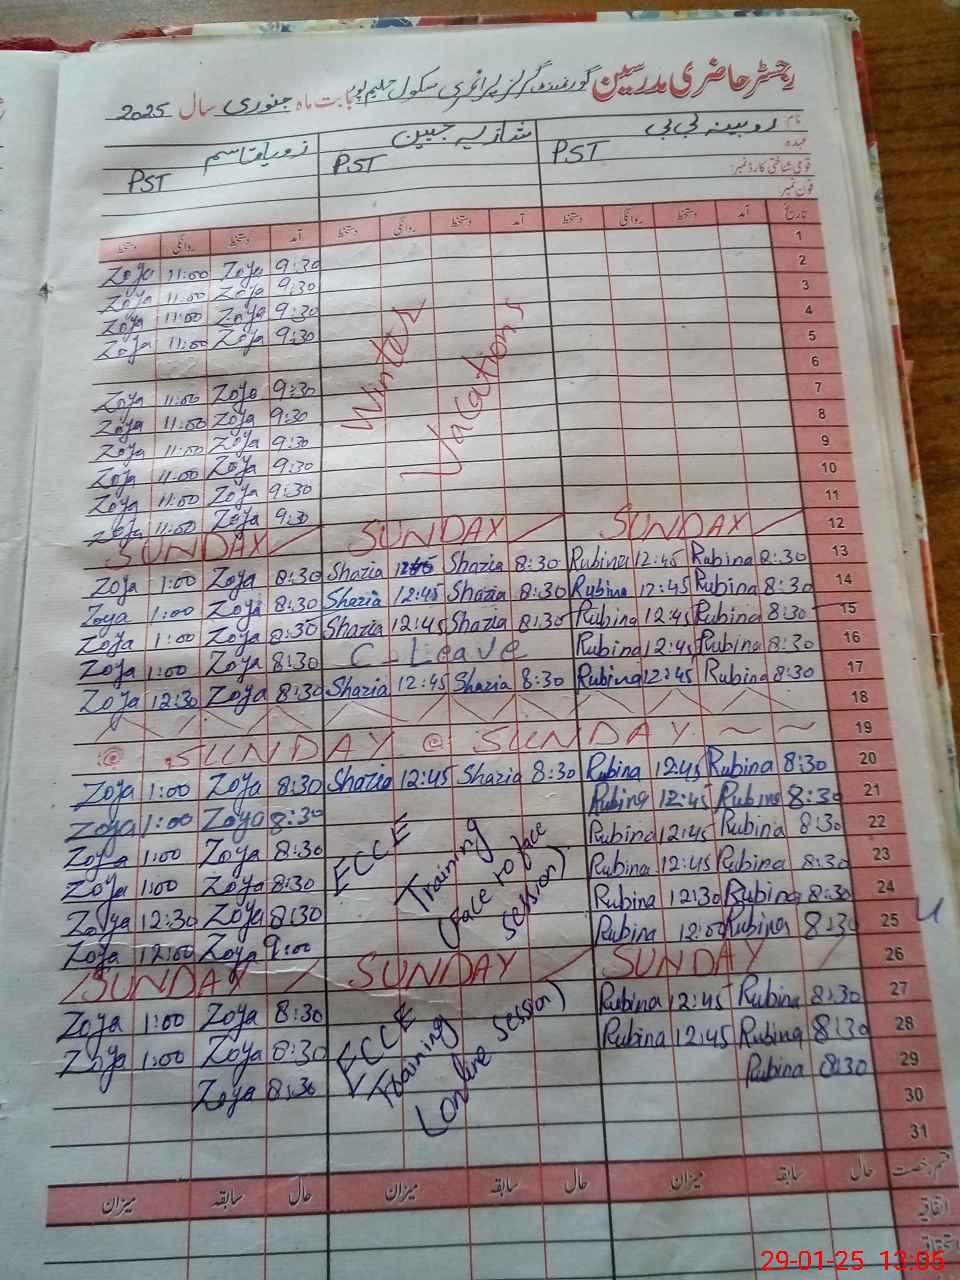 رجسٹر حاضری مدرسین گورنمنٹ گرلز پرائمری سکول حلیم پور بابت ماہ جنوری سال 2025
نام روبینہ بی بی شازیہ جبین زویا قاسم
عہدہ PST PST PST
قومی شناختی کارڈ نمبر:
فون نمبر:
تاریخ آمد دستخط روانگی دستخط آمد دستخط روانگی دستخط آمد دستخط روانگی دستخط
1
Zoya 11:00 Zoya 9:30 2
Zoya 11:00 Zoya 9:30 3
Zoya 11:00 Zoya 9:30 4
Zoya 11:00 Zoya 9:30 5
Winter Vacations
6
Zoya 11:00 Zoya 9:30 7
Zoya 11:00 Zoya 9:30 8
Zoya 11:00 Zoya 9:30 9
Zoya 11:00 Zoya 9:30 10
Zoya 11:00 Zoya 9:30 11
Zoya 11:00 Zoya 9:30
SUNDAY SUNDAY SUNDAY 12
Zoya 1:00 Zoya 8:30 Shazia 12:45 Shazia 8:30 Rubina 12:45 Rubina 8:30 13
Zoya 1:00 Zoya 8:30 Shazia 12:45 Shazia 8:30 Rubina 12:45 Rubina 8:30 14
Zoya 1:00 Zoya 8:30 Shazia 12:45 Shazia 8:30 Rubina 12:45 Rubina 8:30 15
Zoya 1:00 Zoya 8:30 C-Leave Rubina 12:45 Rubina 8:30 16
Zoya 12:30 Zoya 8:30 Shazia 12:45 Shazia 8:30 Rubina 12:45 Rubina 8:30 17
18
SUNDAY SUNDAY 19
Zoya 1:00 Zoya 8:30 Shazia 12:45 Shazia 8:30 Rubina 12:45 Rubina 8:30 20
Zoya 1:00 Zoya 8:30 Rubina 12:45 Rubina 8:30 21
Zoya 1:00 Zoya 8:30 Rubina 12:45 Rubina 8:30 22
Zoya 1:00 Zoya 8:30 Rubina 12:45 Rubina 8:30 23
Zoya 12:30 Zoya 8:30 Rubina 12:30 Rubina 8:30 24
Zoya 12:00 Zoya 9:00 Rubina 12:00 Rubina 8:30 25
ECCE Training (Face to face session)
SUNDAY SUNDAY SUNDAY 26
Zoya 1:00 Zoya 8:30 Rubina 12:45 Rubina 8:30 27
Zoya 1:00 Zoya 8:30 Rubina 12:45 Rubina 8:30 28
Zoya 8:30 Rubina 8:30 29
ECCE Training (Online session)
30
31
قسم رخصت حال سابقہ میزان حال سابقہ میزان حال سابقہ میزان
اتفاقیہ
29-01-25 13:05